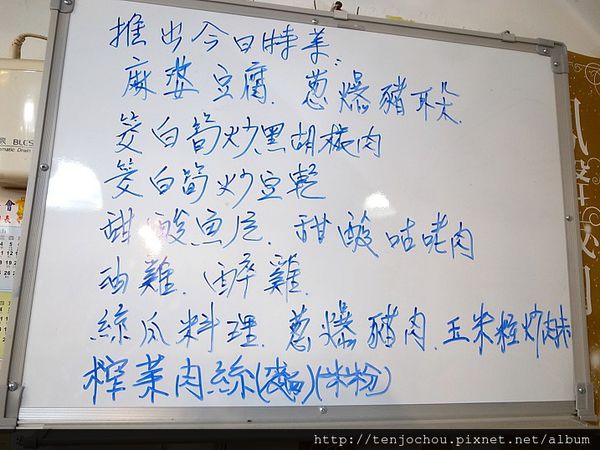 推出今日特菜:
麻婆豆腐. 蔥爆豬耳朵.
茭白筍炒黑胡椒肉
茭白筍炒豆乾
甜酸魚片. 甜酸咕咾肉
油雞. 醉雞.
絲瓜料理. 蔥爆豬肉. 玉米粒炒肉末
榨菜肉絲(麵)(米粉)
BLCS
http://tenjochou.pixnet.net/album